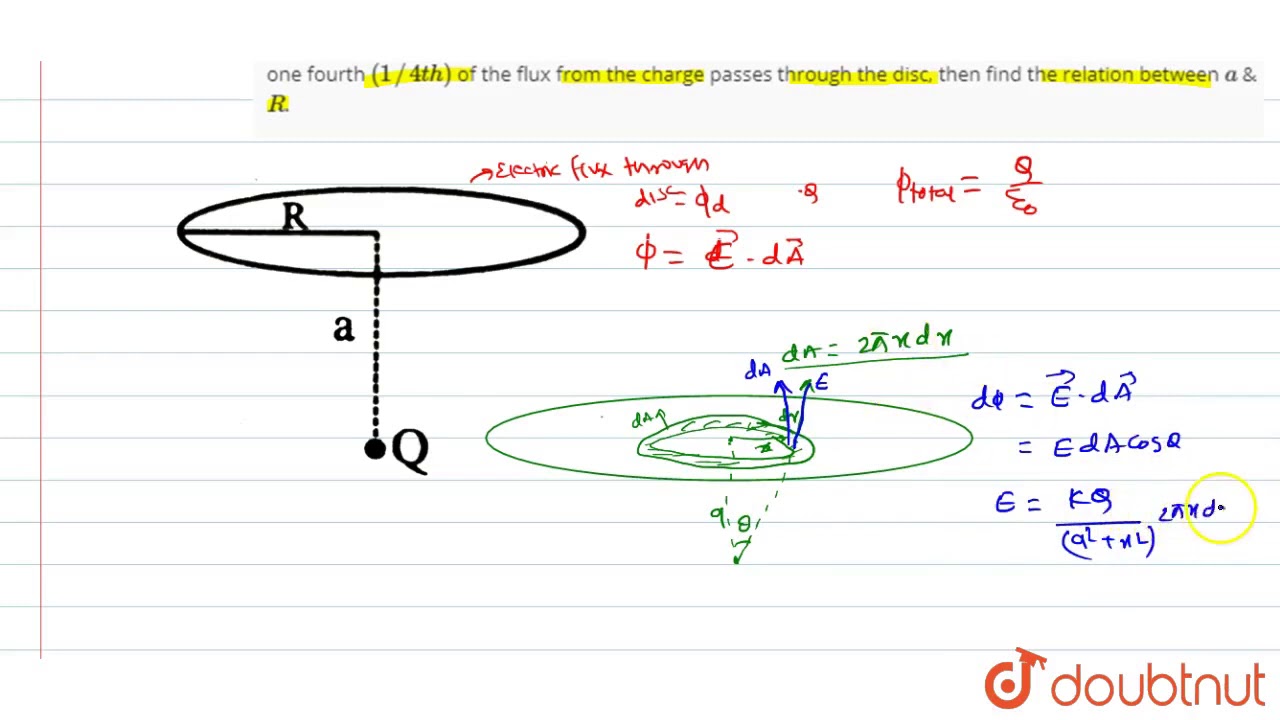 one fourth (1/4th) of the flux from the charge passes through the disc, then find the relation between a &
R.
→ Electric flux through
disc = ϕd
·Q
ϕtotal = Q/ε0
R
ϕ = E⃗ · dA⃗
a
dA = 2πxdx
dA
E
dϕ = E⃗ · dA⃗
dA
dx
x
= E dA cosθ
Q
E = KQ/(a²+x²) 2πxd
a
θ
doubtnut